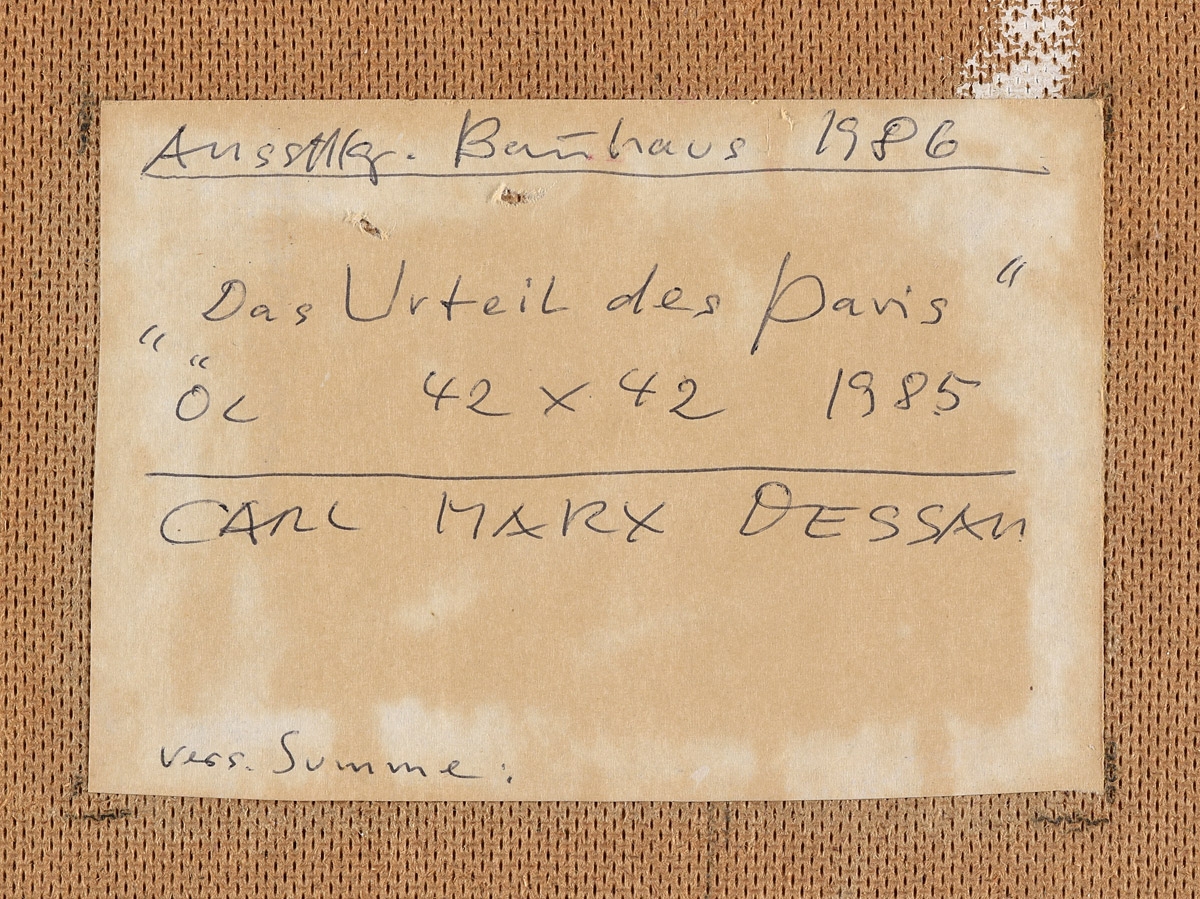 Ausstllg. Bauhaus 1986
„Das Urteil des Paris“
Öl 42 x 42 1985
CARL MARX DESSAU
vers. Summe: